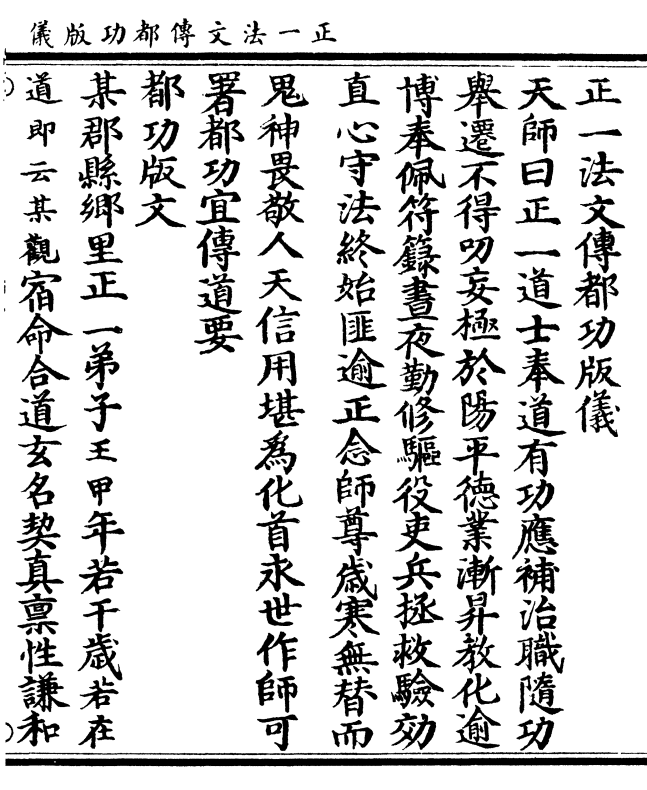 正一法文傳都功版儀
正一法文傳都功版儀
天師曰正一道士奉道有功應補治職隨功
舉遷不得叨妄極於陽平德業漸昇教化逾
博奉佩符籙晝夜勤修驅役吏兵拯救驗効
直心守法終始匪逾正念師尊歲寒無替而
鬼神畏敬人天信用堪為化首永世作師可
署都功宜傳道要
都功版文
某郡縣鄉里正一弟子王甲年若干歲若在
道即云某觀宿命合道玄名契真禀性謙和